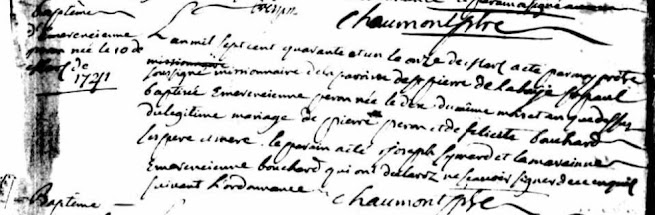 Chaumont ptre
Baptême
d'Emerencienne
perron née le 10 de
de
1741
L'an mil sept cent quarante et un le onze de ... a été par moy prêtre
soussigné missionnaire de la paroisse de st pierre de la baye st paul
baptisée Emerencienne perron née le dix du même mois et an que dessus
du légitime mariage de pierre perron et de felicité bouchard
ses pere et mere. le parain a été joseph simard et la maraine
Emerencienne bouchard qui ont déclaré ne scavoir signer de ce enquis
suivant l'ordonnance
Chaumont ptre
Baptême